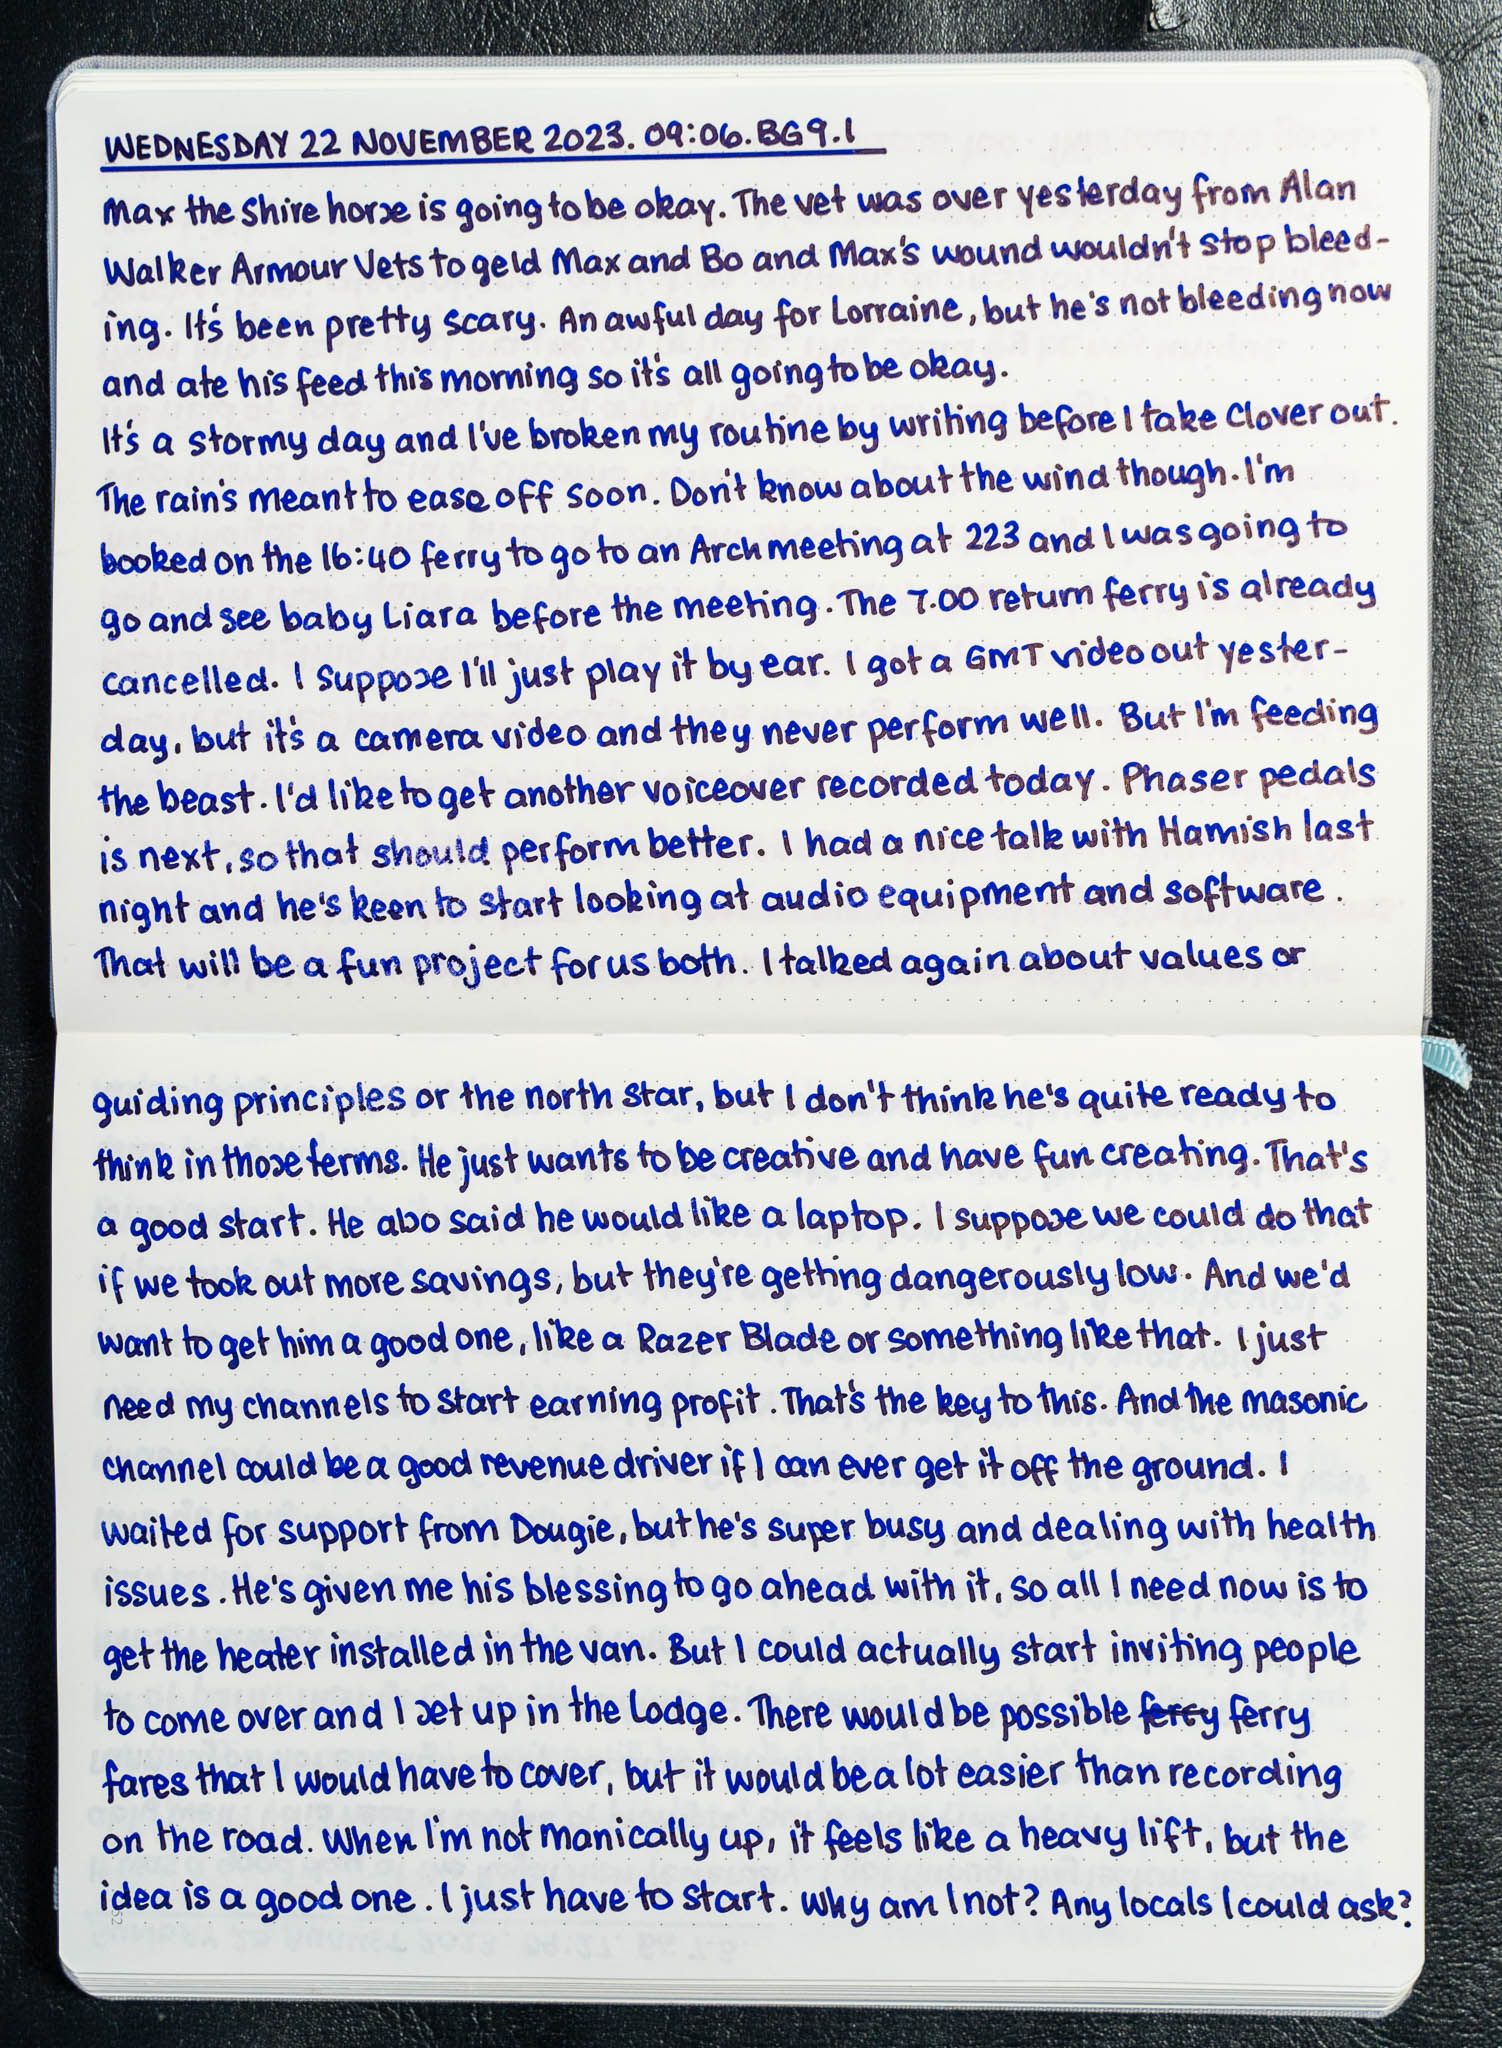 WEDNESDAY 22 NOVEMBER 2023. 09:06. BG 9.1
Max the Shire horse is going to be okay. The vet was over yesterday from Alan
Walker Armour Vets to geld Max and Bo and Max's wound wouldn't stop bleed-
ing. It's been pretty scary. An awful day for Lorraine, but he's not bleeding now
and ate his feed this morning so it's all going to be okay.
It's a stormy day and I've broken my routine by writing before I take Clover out.
The rain's meant to ease off soon. Don't know about the wind though. I'm
booked on the 16:40 ferry to go to an Arch meeting at 223 and I was going to
go and see baby Liara before the meeting. The 7.00 return ferry is already
cancelled. I suppose I'll just play it by ear. I got a GMT video out yester-
day, but it's a camera video and they never perform well. But I'm feeding
the beast. I'd like to get another voiceover recorded today. Phaser pedals
is next, so that should perform better. I had a nice talk with Hamish last
night and he's keen to start looking at audio equipment and software.
That will be a fun project for us both. I talked again about values or
guiding principles or the north star, but I don't think he's quite ready to
think in those terms. He just wants to be creative and have fun creating. That's
a good start. He also said he would like a laptop. I suppose we could do that
if we took out more savings, but they're getting dangerously low. And we'd
want to get him a good one, like a Razer Blade or something like that. I just
need my channels to start earning profit. That's the key to this. And the masonic
channel could be a good revenue driver if I can ever get it off the ground. I
waited for support from Dougie, but he's super busy and dealing with health
issues. He's given me his blessing to go ahead with it, so all I need now is to
get the heater installed in the van. But I could actually start inviting people
to come over and I set up in the Lodge. There would be possible ferry ferry
fares that I would have to cover, but it would be a lot easier than recording
on the road. When I'm not manically up, it feels like a heavy lift, but the
idea is a good one. I just have to start. Why am I not? Any locals I could ask?